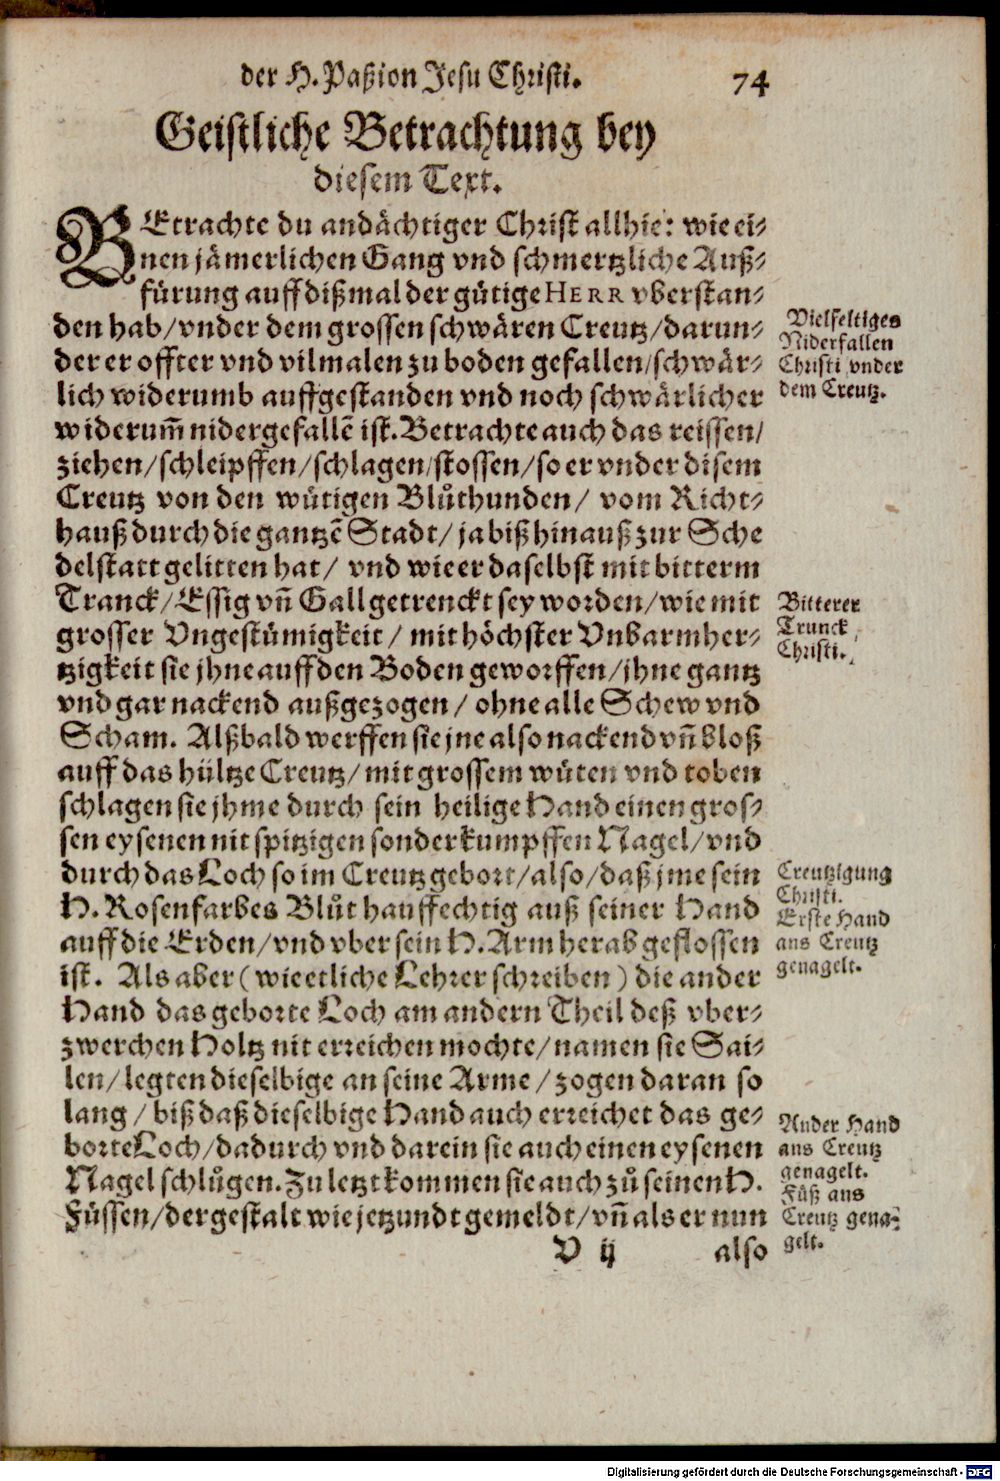 der H. Paßion Jesu Christi. 74
Geistliche Betrachtung bey
diesem Text.
BEtrachte du andächtiger Christ allhie: wie ei-
nen jämerlichen Gang vnd schmertzliche Auß-
fürung auff dißmal der gütige HERR vberstan-
den hab/ vnder dem grossen schwären Creutz/ darun-
der er offter vnd vilmalen zu boden gefallen/ schwär-
lich widerumb auffgestanden vnd noch schwärlicher
widerum̃ nidergefallẽ ist. Betrachte auch das reissen/
ziehen/ schleipffen/ schlagen/ stossen/ so er vnder disem
Creutz von den wütigen Blůthunden/ vom Richt-
hauß durch die gantzẽ Stadt/ ja biß hinauß zur Sche
delstatt gelitten hat/ vnd wie er daselbst mit bitterm
Tranck/ Essig vñ Gall getrenckt sey worden/ wie mit
grosser Vngestümigkeit/ mit höchster Vnbarmher-
tzigkeit sie jhne auff den Boden geworffen/ jhne gantz
vnd gar nackend außgezogen/ ohne alle Schew vnd
Scham. Alßbald werffen sie jne also nackend vñ bloß
auff das hültze Creutz/ mit grossem wüten vnd toben
schlagen sie jhme durch sein heilige Hand einen gros-
sen eysenen nit spitzigen sonder kumpffen Nagel/ vnd
durch das Loch so im Creutz gebort/ also/ daß jme sein
H. Rosenfarbes Blůt hauffechtig auß seiner Hand
auff die Erden/ vnd vber sein H. Arm herab geflossen
ist. Als aber (wie etliche Lehrer schreiben) die ander
Hand das geborte Loch am andern Theil deß vber-
zwerchen Holtz nit erreichen mochte/ namen sie Sai-
len/ legten dieselbige an seine Arme/ zogen daran so
lang/ biß daß dieselbige Hand auch erreichet das ge-
borte Loch/ dadurch vnd darein sie auch einen eysenen
Nagel schlůgen. Zu letzt kommen sie auch zů seinen H.
Füssen/ der gestalt wie jetzundt gemeldt/ vñ als er nun
V ij also
Vielfeltiges
Niderfallen
Christi vnder
dem Creutz.
Bitterer
Trunck
Christi.
Creutzigung
Christi.
Erste Hand
ans Creutz
genagelt.
Ander Hand
ans Creutz
genagelt.
Füß ans
Creutz gena-
gelt.
Digitalisierung gefördert durch die Deutsche Forschungsgemeinschaft - DFG